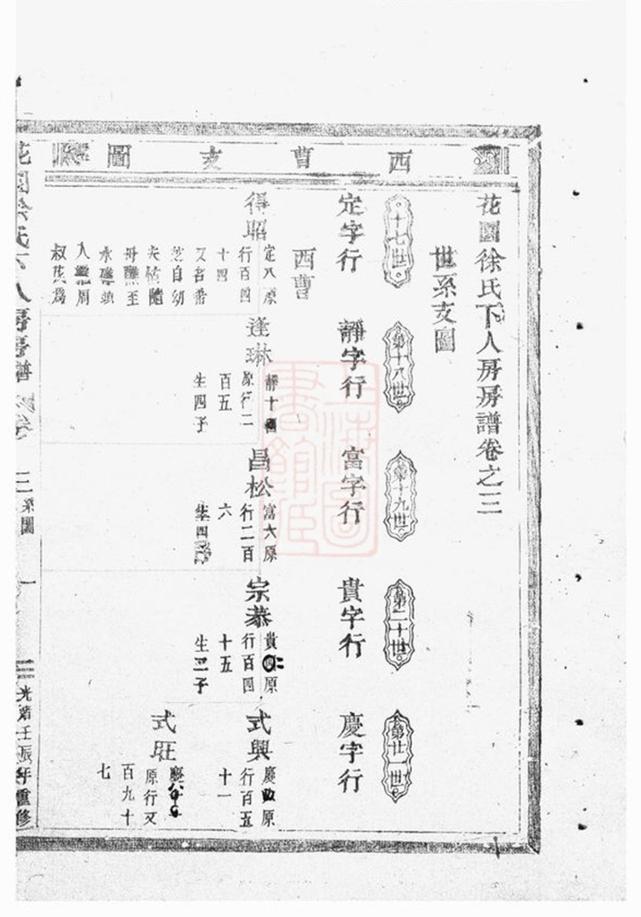 西曹支圖
花園徐氏下人房房譜卷之三
世系支圖
十七世
第十八世
第十九世
第二十世
第廿一世
定字行
靜字行
富字行
貴字行
慶字行
西曹
得昭
定八原
行百四
十四
又名番
芝自幼
夫
母
叔
逢琳
靜十
原行二
百五
生四子
昌松
富六原
行二百
六
生四
宗恭
貴 原
行百四
十五
生二子
式興
慶 原
行百五
十一
式旺
慶
原行又
百九十
七
花園徐氏下人房房譜 卷三 系圖 一 光緒壬辰年重修
上海圖書館藏